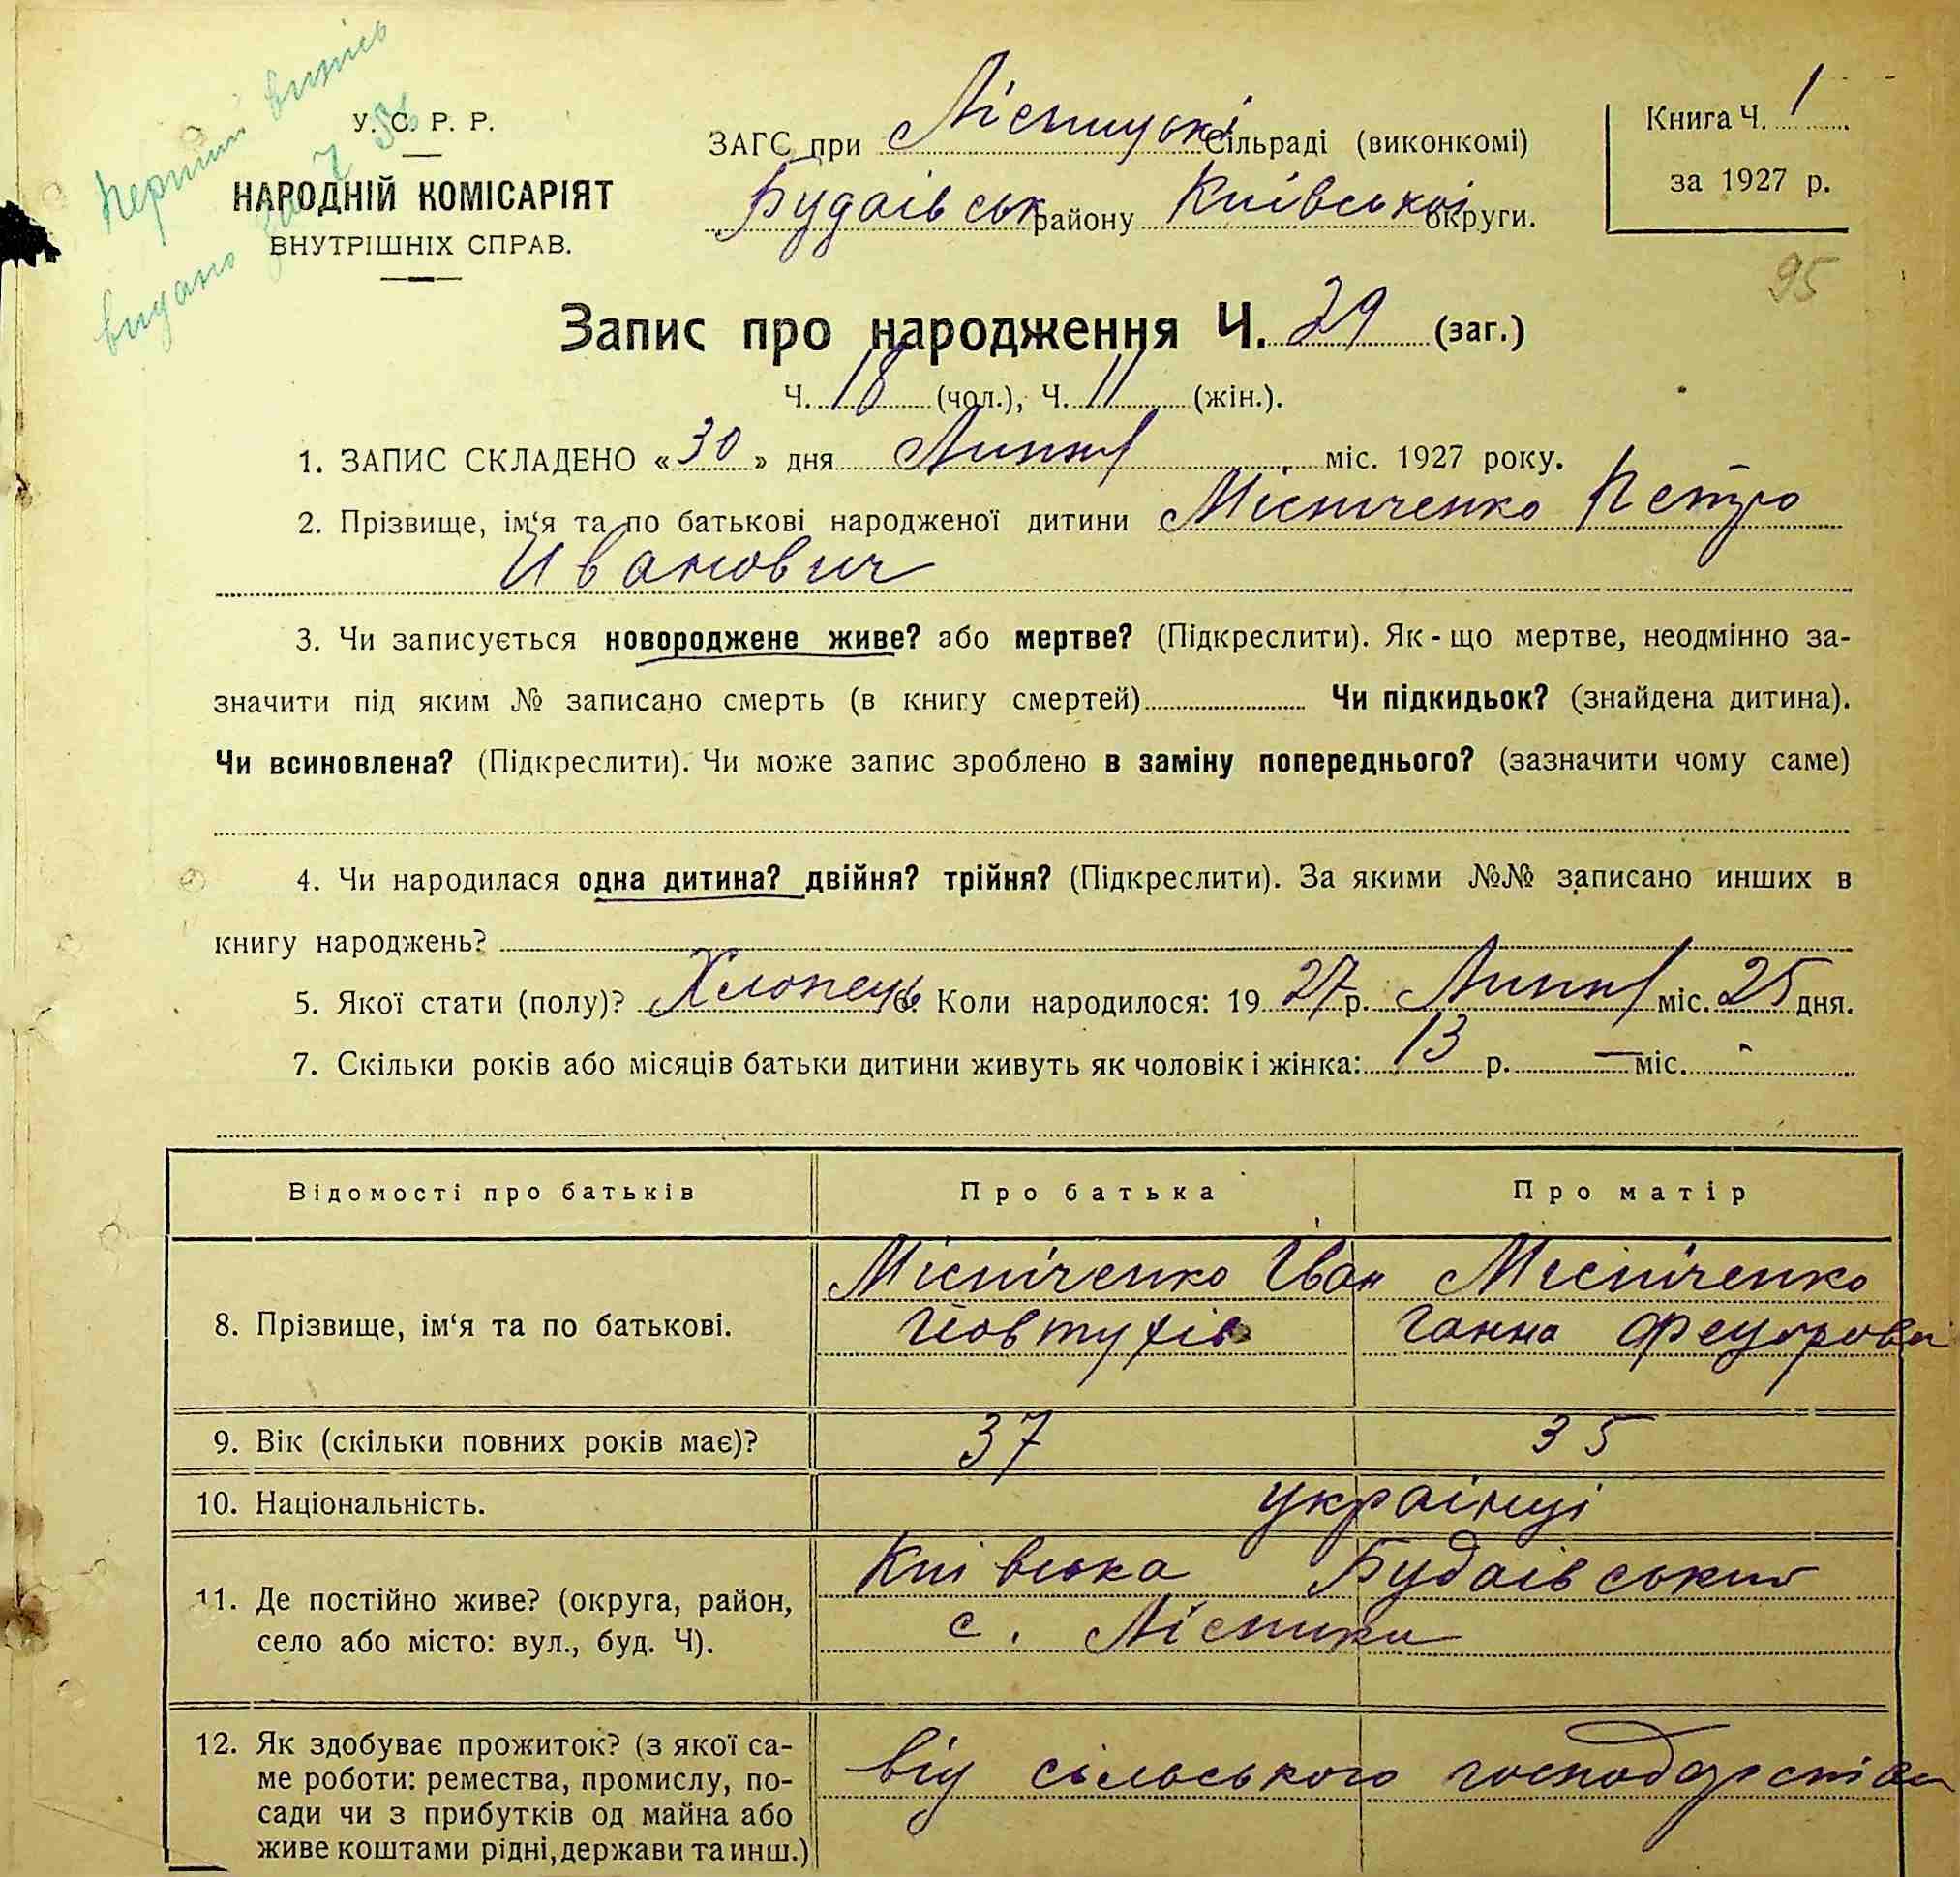 Перший випісь
видано 7 36
У. С. Р. Р.
НАРОДНІЙ КОМІСАРІЯТ
ВНУТРІШНІХ СПРАВ.
ЗАГС при Лісницькі Сільраді (виконкомі)
Будаівськ району Київської округи.
Книга Ч. 1
за 1927 р.
95
Запис про народження Ч. 29 (заг.)
Ч. 18 (чол.), Ч. 11 (жін.).
1. ЗАПИС СКЛАДЕНО «30» дня Липня міс. 1927 року.
2. Прізвище, ім‘я та по батькові народженої дитини Місніченко Петро
Иванович
3. Чи записується новороджене живе? або мертве? (Підкреслити). Як-що мертве, неодмінно за-
значити під яким № записано смерть (в книгу смертей) Чи підкидьок? (знайдена дитина).
Чи всиновлена? (Підкреслити). Чи може запис зроблено в заміну попереднього? (зазначити чому саме)
4. Чи народилася одна дитина? двійня? трійня? (Підкреслити). За якими №№ записано инших в
книгу народжень?
5. Якої стати (полу)? Хлопець 6. Коли народилося: 1927 р. Липня міс. 25 дня.
7. Скільки років або місяців батьки дитини живуть як чоловік і жінка: 13 р. — міс. -
Відомості про батьків Про батька Про матір
8. Прізвище, ім‘я та по батькові. Місніченко Іван Місніченко
Йовтухів Ганна Федорова
9. Вік (скільки повних років має)? 37 35
10. Національність. українці
11. Де постійно живе? (округа, район, Київська Будаівський
село або місто: вул., буд. Ч). с. Лісники
12. Як здобуває прожиток? (з якої са-
ме роботи: ремества, промислу, по- від сільського господарства
сади чи з прибутків од майна або
живе коштами рідні, держави та инш.)